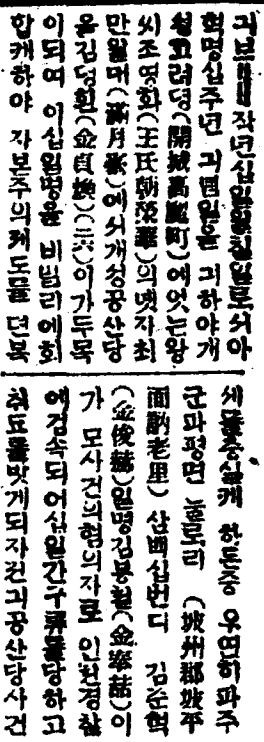 긔브██작년십일월칠일로서아
혁명십주년 긔념일을 긔하야개
성고려뎡(開城高麗町)에잇는왕
씨조영화(王氏朝榮華)의녯자최
만월대(滿月臺)에서개성공산당
올김뎡환(金貞煥)(二六)이가두목
이되여 이십일명을 비밀리에회
합케하야 자본주의제도를 뎐복
세를충실케 하든중 우연히파주
군파평면 눌로리 (坡州郡坡平
面訥老里) 삼백십번디 김준혁
(金俊赫)일명김봉철(金奉喆)이
가 모사건의혐의자로 인천경찰
에검속되어십일간구류를당하고
취됴를밧게되자전긔공산당사건